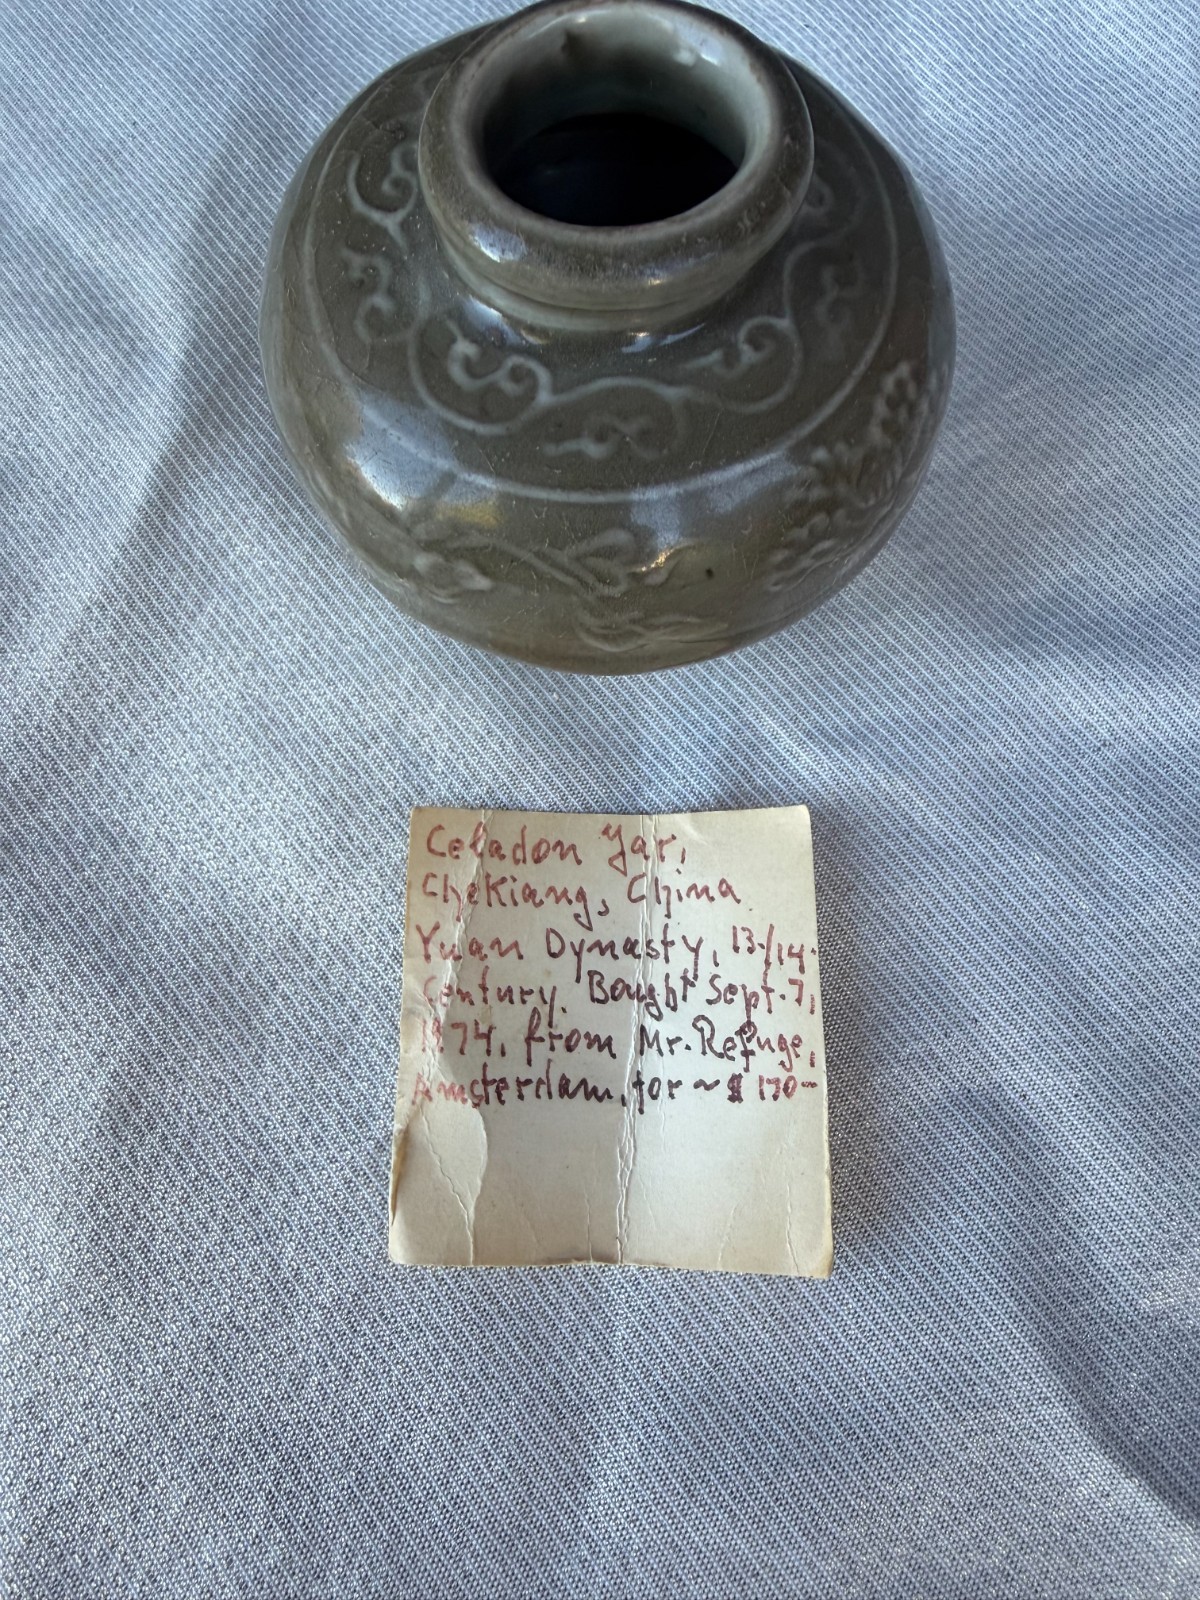 Celadon Yar,
Chekiang, China
Yuan Dynasty, 13./14.
Century. Bought Sept. 7,
1974, from Mr. Refuge,
Amsterdam, for ~ $ 170-